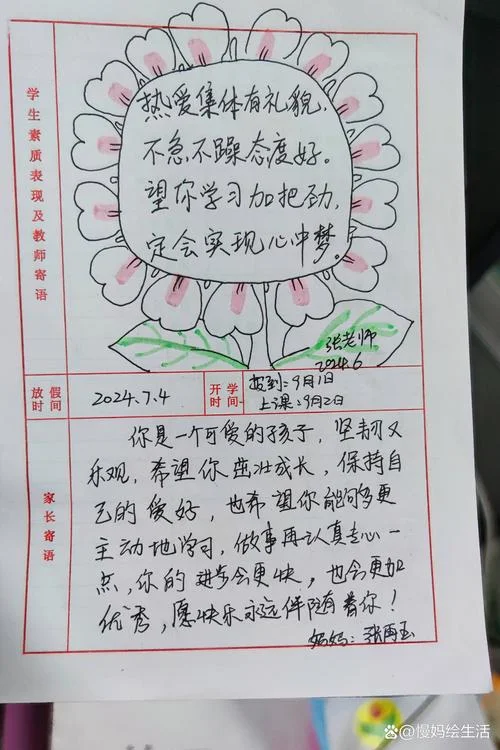 学生素质表现及教师寄语
热爱集体有礼貌,
不急不躁态度好。
望你学习加把劲,
定会实现心中梦。
张老师
2024.6
放假时间
2024.7.4
开学时间
报到:9月1日
上课:9月2日
家长寄语
你是一个可爱的孩子,坚韧又
乐观,希望你茁壮成长,保持自
己的爱好,也希望你能够更
主动地学习,做事再认真走心一
点,你的进步会更快,也会更加
优秀,愿快乐永远伴随着你!
妈妈:张再玉
@慢妈绘生活